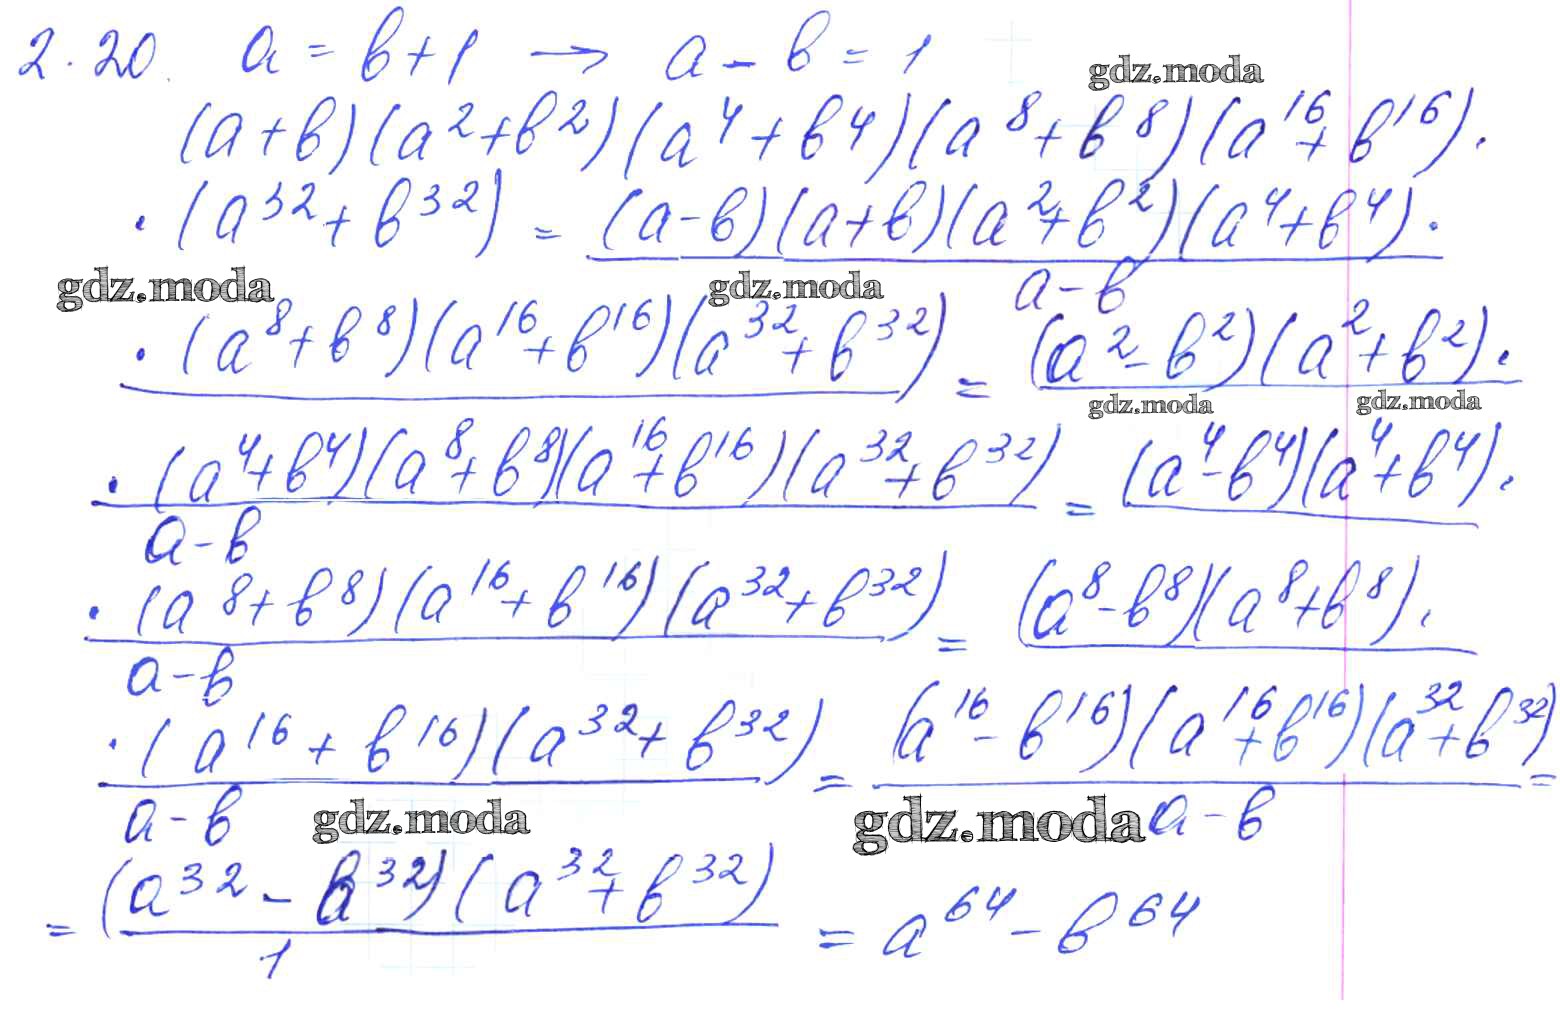 2.20. a = b + 1 → a - b = 1
gdz.moda
(a+b)(a²+b²)(a⁴+b⁴)(a⁸+b⁸)(a¹⁶+b¹⁶)·
·(a³²+b³²) = (a-b)(a+b)(a²+b²)(a⁴+b⁴)·
a-b
gdz.moda gdz.moda
·(a⁸+b⁸)(a¹⁶+b¹⁶)(a³²+b³²) = (a²-b²)(a²+b²)·
gdz.moda gdz.moda
·(a⁴+b⁴)(a⁸+b⁸)(a¹⁶+b¹⁶)(a³²+b³²) = (a⁴-b⁴)(a⁴+b⁴)·
a-b
·(a⁸+b⁸)(a¹⁶+b¹⁶)(a³²+b³²) = (a⁸-b⁸)(a⁸+b⁸)·
a-b
·(a¹⁶+b¹⁶)(a³²+b³²) = (a¹⁶-b¹⁶)(a¹⁶+b¹⁶)(a³²+b³²) =
a-b gdz.moda gdz.moda a-b
= (a³²-b³²)(a³²+b³²) = a⁶⁴-b⁶⁴
1